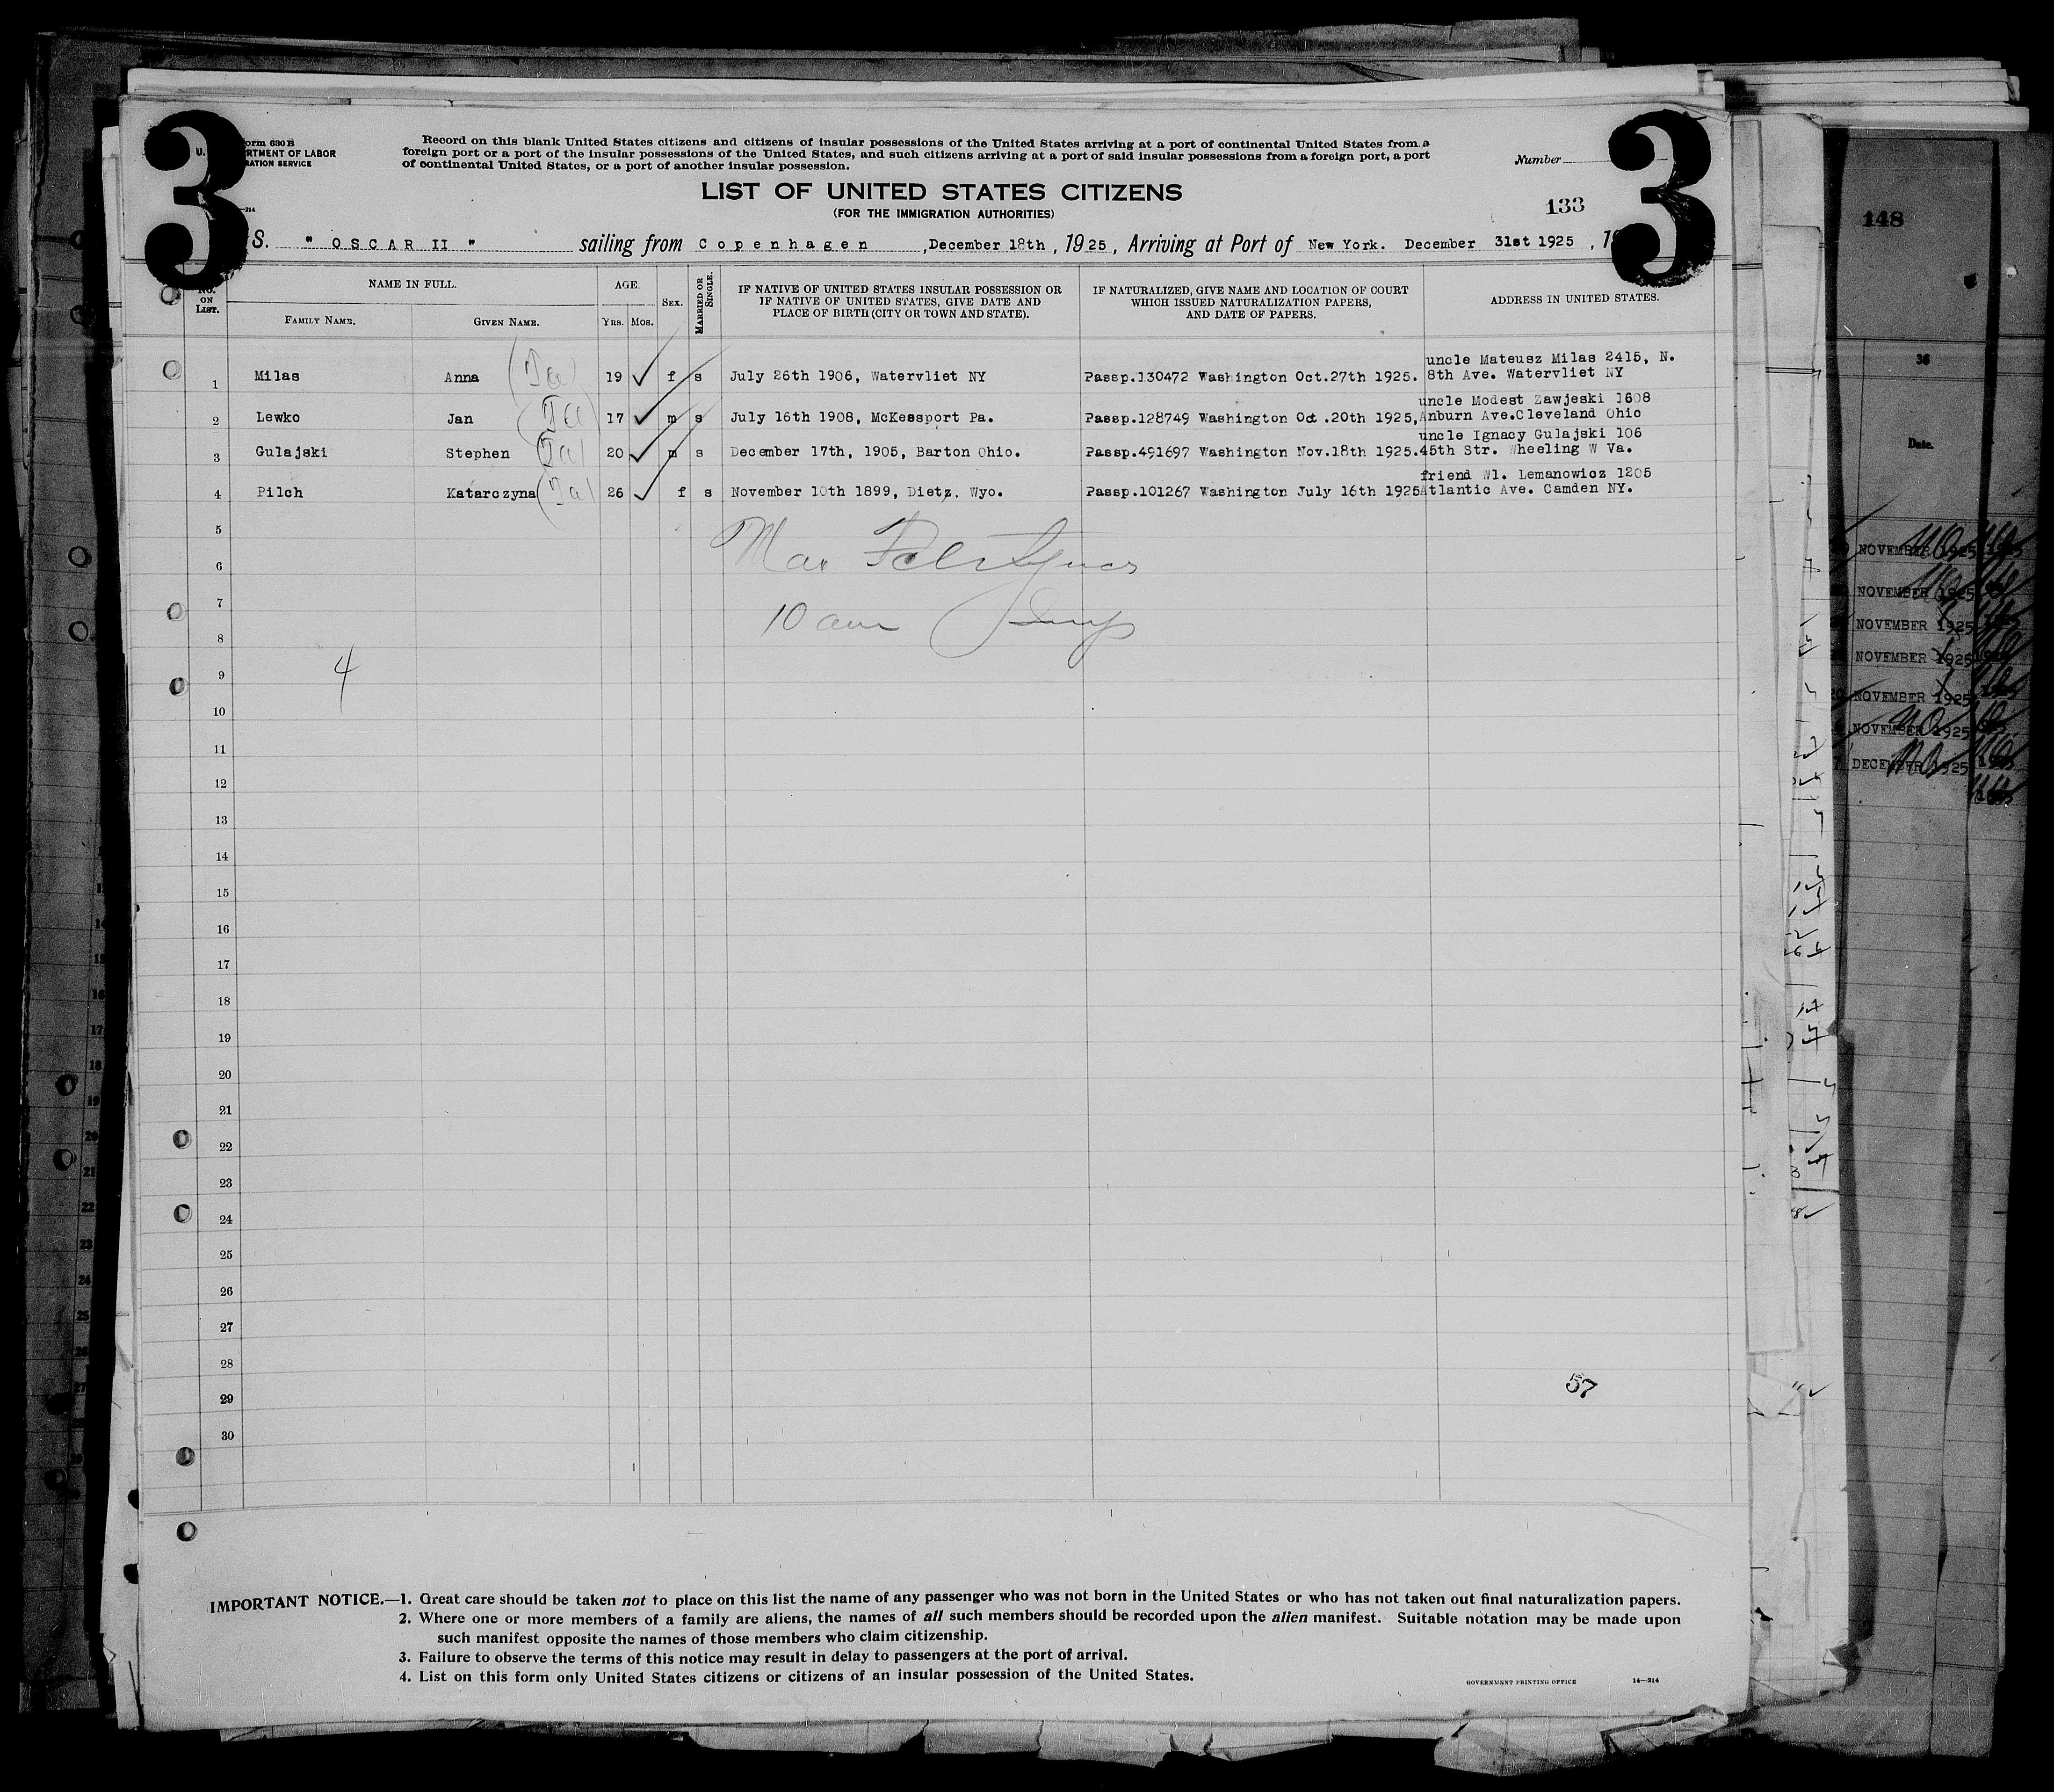 3
3
U.
orm 630 B
RTMENT OF LABOR
RATION SERVICE
—214
Record on this blank United States citizens and citizens of insular possessions of the United States arriving at a port of continental United States from a
foreign port or a port of the insular possessions of the United States, and such citizens arriving at a port of said insular possessions from a foreign port, a port
of continental United States, or a port of another insular possession.
Number
LIST OF UNITED STATES CITIZENS
(FOR THE IMMIGRATION AUTHORITIES)
133
148
S. " OSCAR II " sailing from Copenhagen ,December 18th , 1925 , Arriving at Port of New York. December 31st 1925 , 1
NO. ON LIST.
NAME IN FULL.
FAMILY NAME.
GIVEN NAME.
AGE.
YRS. MOS.
SEX.
MARRIED OR SINGLE.
IF NATIVE OF UNITED STATES INSULAR POSSESSION OR
IF NATIVE OF UNITED STATES, GIVE DATE AND
PLACE OF BIRTH (CITY OR TOWN AND STATE).
IF NATURALIZED, GIVE NAME AND LOCATION OF COURT
WHICH ISSUED NATURALIZATION PAPERS,
AND DATE OF PAPERS.
ADDRESS IN UNITED STATES.
uncle Mateusz Milas 2415, N.
1 Milas Anna 19 f s July 26th 1906, Watervliet NY Passp.130472 Washington Oct.27th 1925. 8th Ave. Watervliet NY
uncle Modest Zawjeski 1608
2 Lewko Jan 17 m s July 16th 1908, McKessport Pa. Passp.128749 Washington Oct .20th 1925, Anburn Ave.Cleveland Ohio
uncle Ignacy Gulajski 106
3 Gulajski Stephen 20 m s December 17th, 1905, Barton Ohio. Passp.491697 Washington Nov.18th 1925. 45th Str. Wheeling W Va.
friend Wl. Lemanowicz 1205
4 Pilch Katarczyna 26 f s November 10th 1899, Dietz, Wyo. Passp.101267 Washington July 16th 1925 Atlantic Ave. Camden NY.
5
6
Max
7
10 am
8
4
9
10
11
12
13
14
15
16
17
18
19
20
21
22
23
24
25
26
27
28
57
29
30
36
Date.
NOVEMBER 1925
NOVEMBER 1925
NOVEMBER 1925
NOVEMBER 1925
NOVEMBER 1925
NOVEMBER 1925
DECEMBER 1925
IMPORTANT NOTICE.—1. Great care should be taken not to place on this list the name of any passenger who was not born in the United States or who has not taken out final naturalization papers.
2. Where one or more members of a family are aliens, the names of all such members should be recorded upon the alien manifest. Suitable notation may be made upon
such manifest opposite the names of those members who claim citizenship.
3. Failure to observe the terms of this notice may result in delay to passengers at the port of arrival.
4. List on this form only United States citizens or citizens of an insular possession of the United States.
GOVERNMENT PRINTING OFFICE 14—214